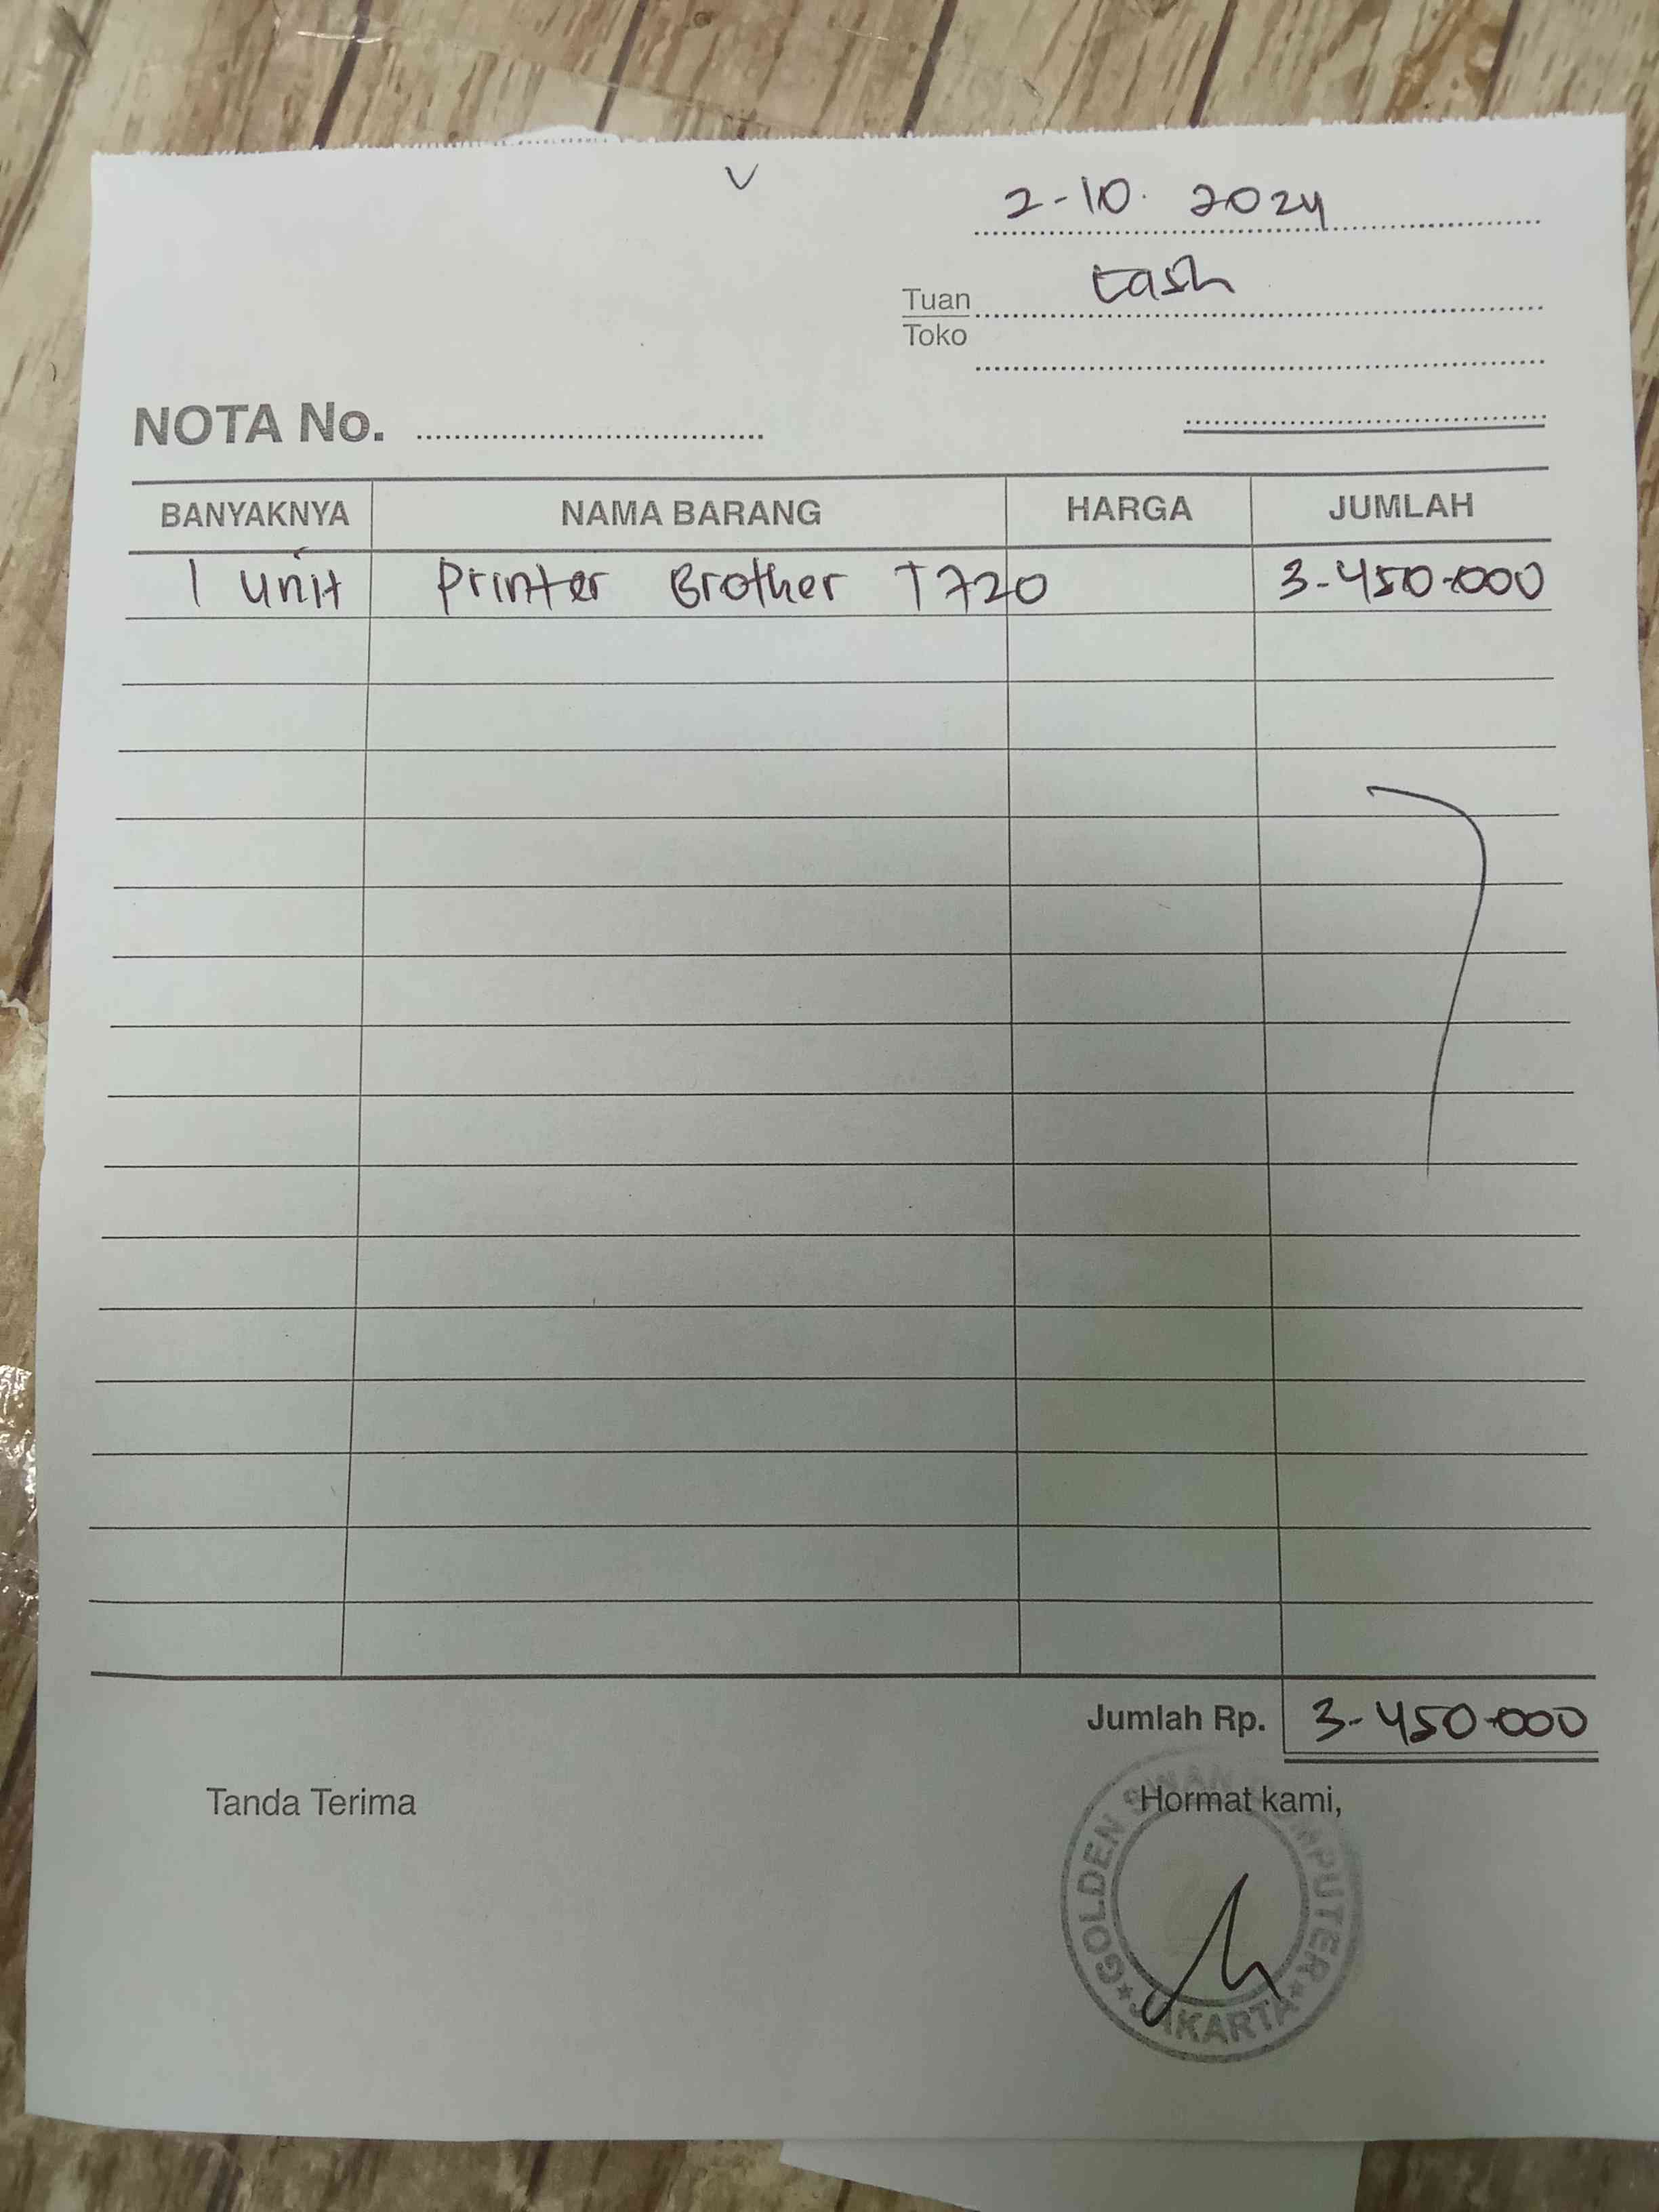 2-10. 2024
Tuan cash
Toko
NOTA No.
BANYAKNYA NAMA BARANG HARGA JUMLAH
1 unit Printer Brother T720 3-450-000
Jumlah Rp. 3-450-000
Tanda Terima Hormat kami,
GOLDEN SWAN COMPUTER
JAKARTA